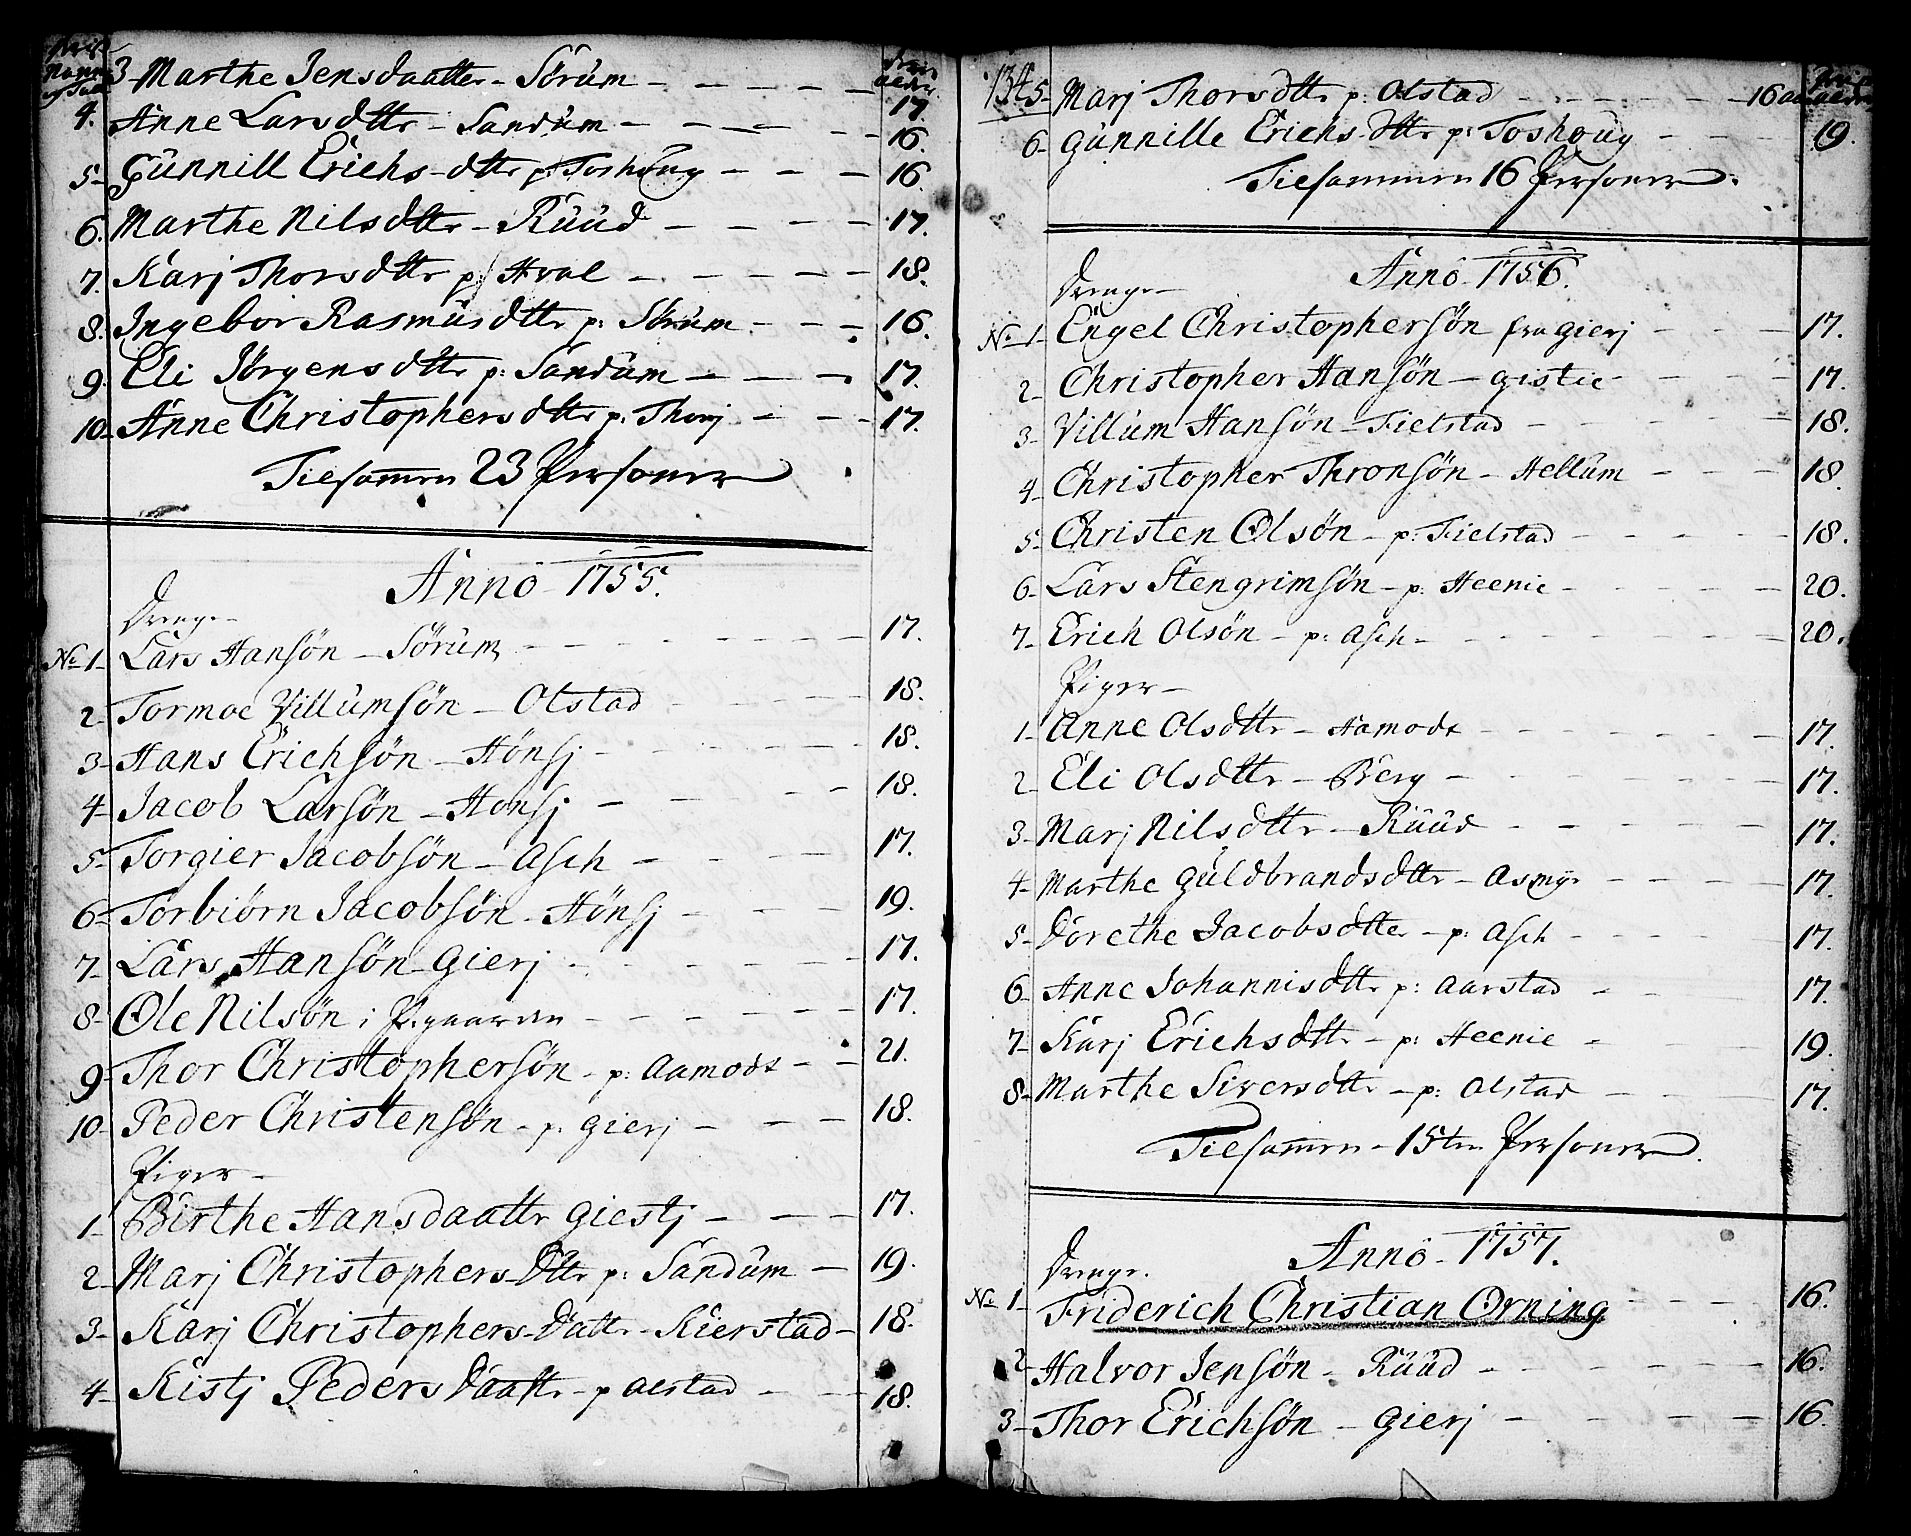 3 - Marthe Jensdaatter - Sörüm - - - - 17.
4. Anne Larsdttr - Sandüm - - - - 16.
5 - Günnill Erichs-dttr p: Toshoug - - - 16.
6. Marthe Nilsdttr - Rüüd - - - - 17.
7. Karj Thorsdttr p: Hval - - - - 18.
8. Ingebor Rasmüsdttr p: Sörüm - - - 16.
9. Eli Jörgensdttr p: Sandüm - - - 17.
10. Anne Christophersdttr p: Thorj - - - 17.
Tilsammen 23 Personer
Anno - 1755.
Drenge -
No 1 - Lars Hansön - Sörüm - - - 17.
2 - Tormoe Villümsön - Olstad - - - 18.
3 - Hans Erichsön - Hönsj - - - 18.
4 - Jacob Larsön - Honsj - - - 18.
5 - Torgier Jacobsön - Asch - - - 17.
6 - Torbiörn Jacobsön - Hönsj - - - 19.
7 - Lars Hansön - Gierj - - - 17.
8 - Ole Nilsön i - - - 17.
9 - Thor Christophersön - p: Aamodt - - 21.
10 - Peder Christensön - p: Gierj - - - 18.
Piger -
1 - Birthe Hansdaattr Giestj - - - 17.
2 - Marj Christophers-Dttr p: Sandüm - 19.
3 - Karj Christophers-Dattr - Kierstad - 18.
4 - Kistj Peders Daattr - p Olstad - - 18.
134
5 - Marj Thorsdttr p: Olstad - - - - 16
6 - Günnille Erichs-dttr p: Toshoug - - 19.
Tilsammen 16 Personer.
Anno - 1756.
Drenge -
No 1 - Engel Christophersön fra Gierj - - - 17.
2 - Christopher Hansön - Gistie - - - 17.
3 - Villüm Hansön - Fielstad - - - 18.
4 - Christopher Thronsön - Hellüm - - - 18.
5 - Christen Olsön - p: Fielstad - - - 18.
6 - Lars Stengrimsön - p: Heenie - - - 20.
7 - Erich Olsön - p: Asch - - - 20.
Piger -
1 - Anne Olsdttr - Hamodt - - - 17.
2 - Eli Olsdttr - Berg - - - 17.
3 - Marj Nilsdttr - Rüüd - - - 17.
4 - Marthe Güldbrandsdttr - Asmyr - - - 17.
5 - Dorethe Jacobsdtter - p: Asch - - - 17.
6 - Anne Johannisdttr p: Aarstad - - - 17.
7 - Karj Erichsdttr - p: Heenie - - - 19.
8 - Marthe Siversdttr - p: Olstad - - - 17.
Tilsammen - 15ten Personer.
Anno - 1757.
Drenge.
No 1 - Friderich Christian Orning - - - 16.
2 - Halvor Jensön - Rüüd - - - 16.
3 - Thor Erichsön - Gierj - - - 16.